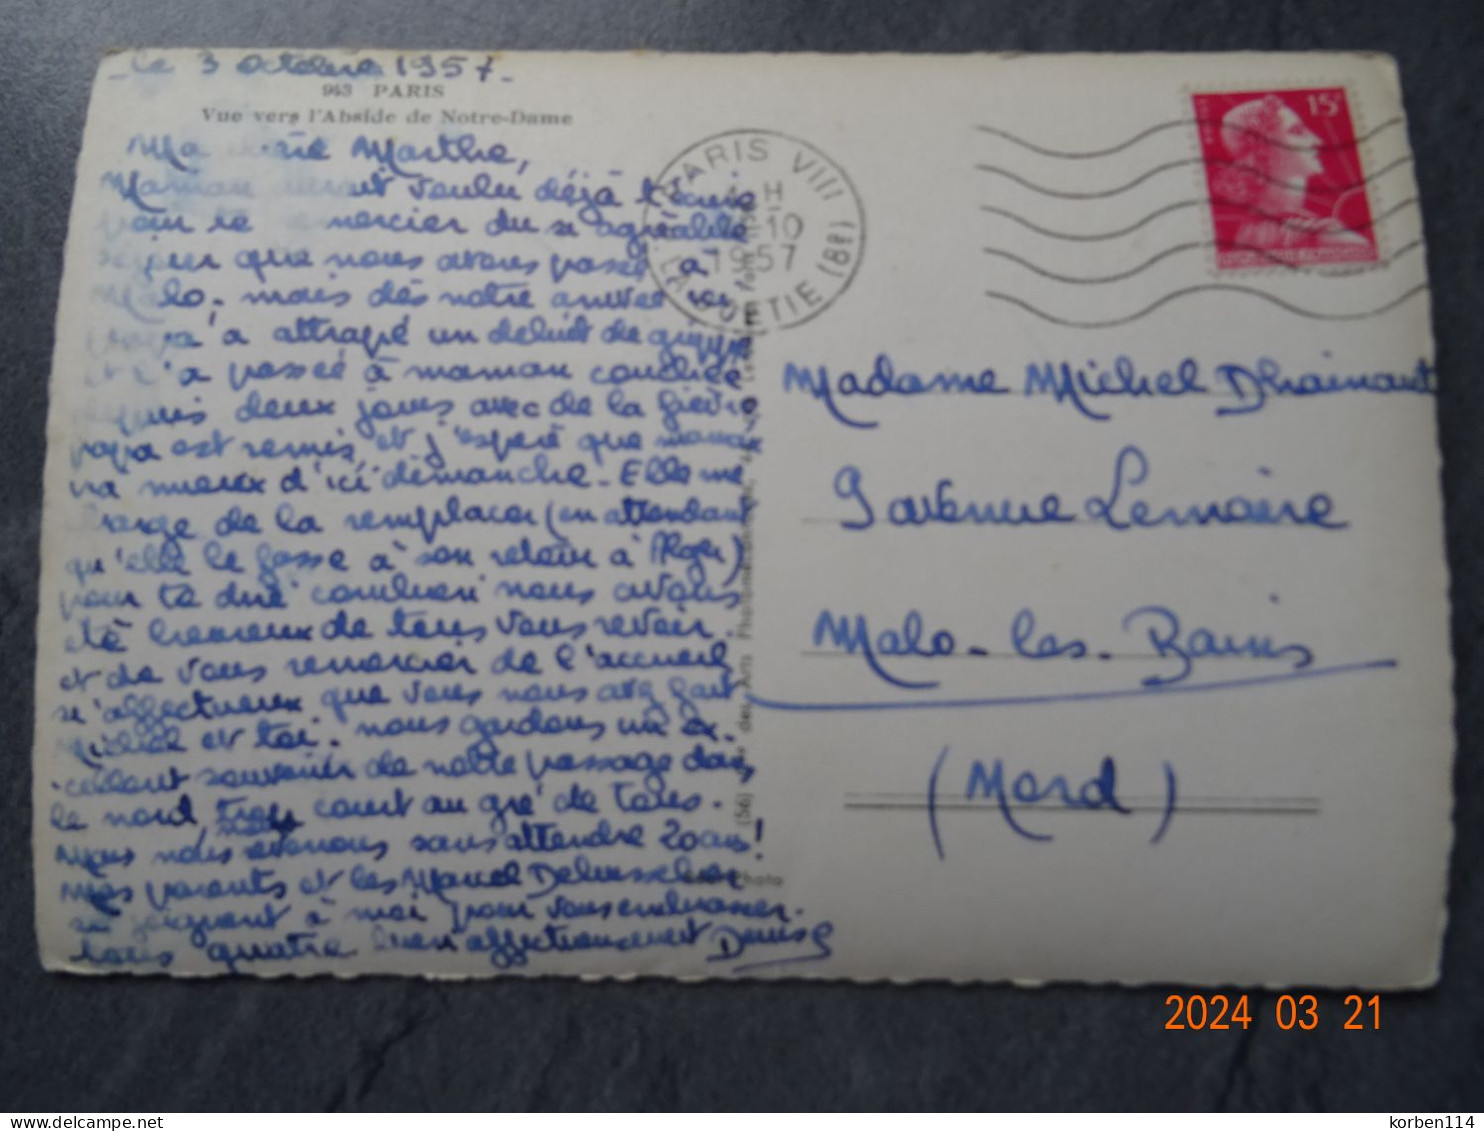 Le 3 Octobre 1957.
963 PARIS
Vue vers l'Abside de Notre-Dame
Ma chérie Marthe,
Maman aurait voulu déjà t'écrire
pour te remercier du si agréable
séjour que nous avons passé à
Malo. mais dès notre arrivée ici
papa a attrapé un début de grippe
et l'a passé à maman couchée
depuis deux jours avec de la fièvre
papa est remis, et j'espère que maman
ira mieux d'ici dimanche. Elle me
charge de la remplacer (en attendant
qu'elle le fasse à son retour à Alger)
pour te dire combien nous avons
été heureux de tous vous revoir.
et de vous remercier de l'accueil
si affectueux que vous nous avez fait
Michel et toi. nous gardons un ex-
cellent souvenir de notre passage dans
le nord, trop court au gré de tous.
Mais nous reviendrons sans attendre 20 ans!
Mes parents et les Marcel
se joignent à moi pour vous embrasser.
tous quatre bien affectueusement Denise
PARIS VIII
3-10
1957
LA BOETIE (8E)
15F
Madame Michel Dhainaut
9 avenue Lemaire
Malo-les-Bains
(Nord)
Photo
2024 03 21
korben114